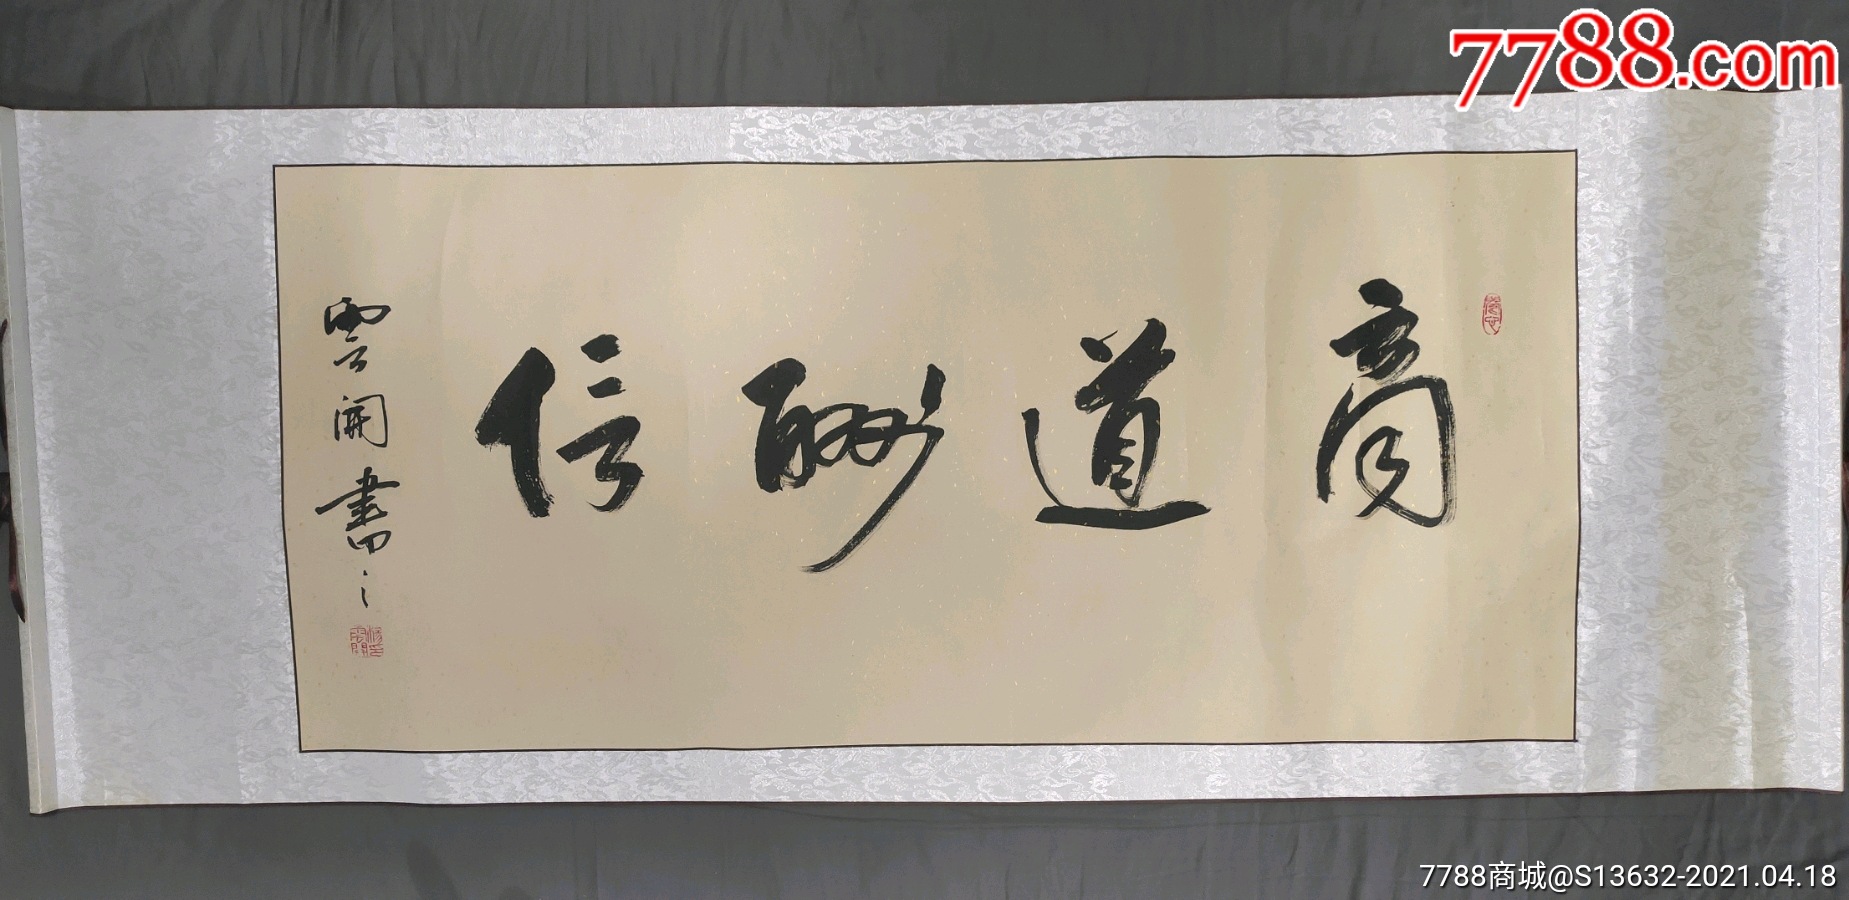 7788.com
商道酬信
雲開書之
7788商城@S13632-2021.04.18